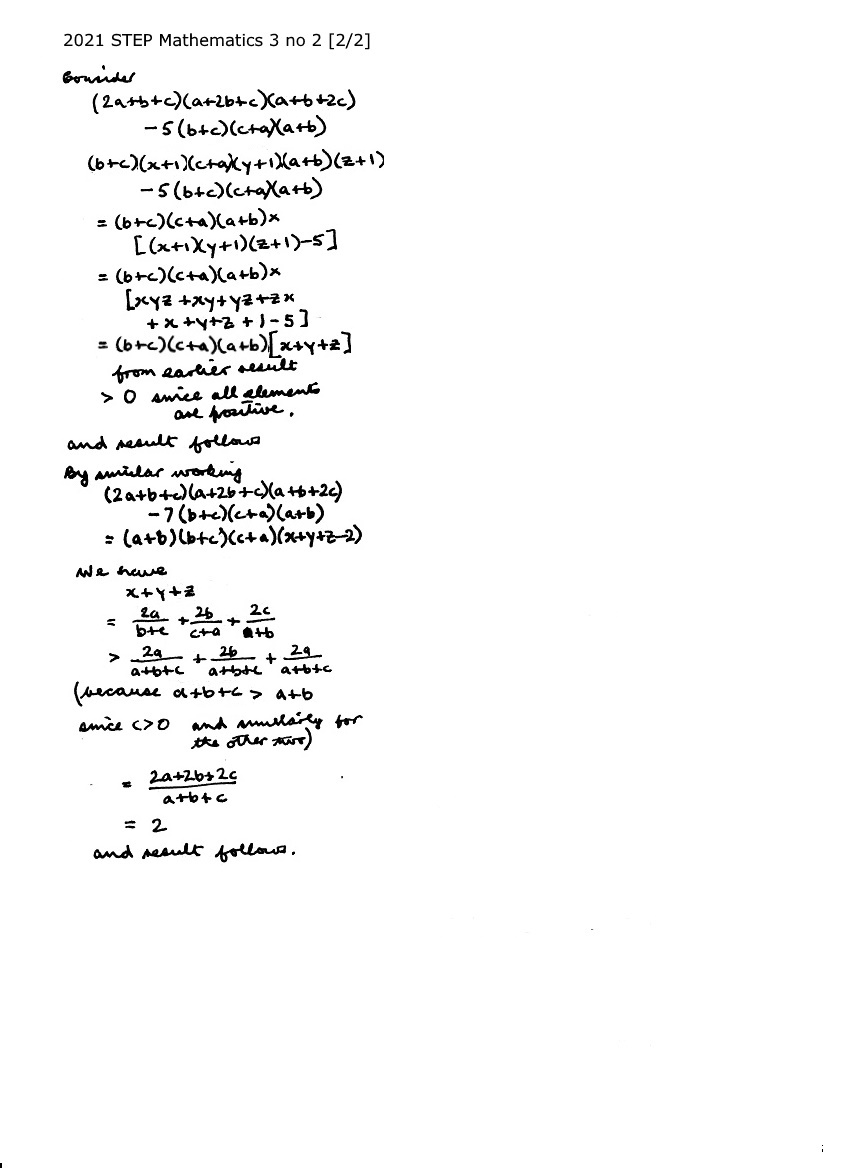 2021 STEP Mathematics 3 no 2 [2/2]
Consider
(2a+b+c)(a+2b+c)(a+b+2c)
-5(b+c)(c+a)(a+b)
(b+c)(x+1)(c+a)(y+1)(a+b)(z+1)
-5(b+c)(c+a)(a+b)
= (b+c)(c+a)(a+b)×
[(x+1)(y+1)(z+1)-5]
= (b+c)(c+a)(a+b)×
[xyz +xy+yz+zx
+x+y+z +1-5]
= (b+c)(c+a)(a+b)[x+y+z]
from earlier result
> 0 since all elements
are positive.
and result follows
By similar working
(2a+b+c)(a+2b+c)(a+b+2c)
-7(b+c)(c+a)(a+b)
= (a+b)(b+c)(c+a)(x+y+z-2)
We have
x+y+z
= 2a/(b+c) + 2b/(c+a) + 2c/(a+b)
> 2a/(a+b+c) + 2b/(a+b+c) + 2a/(a+b+c)
(because a+b+c > a+b
since c>0 and similarly for
the other two)
= (2a+2b+2c)/(a+b+c)
= 2
and result follows.